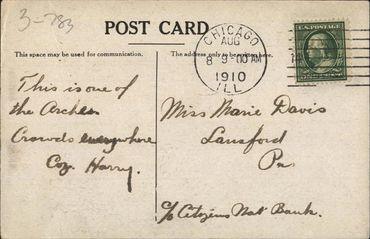 3-783
POST CARD
This space may be used for communication.
The address only to be written here.
CHICAGO
AUG
8 9-00 AM
1910
ILL
U.S. POSTAGE
This is one of
the Arches
Crowds everywhere
Coz. Harry.
Miss Marie Davis
Lansford
Pa
c/o Citizens Nat Bank.